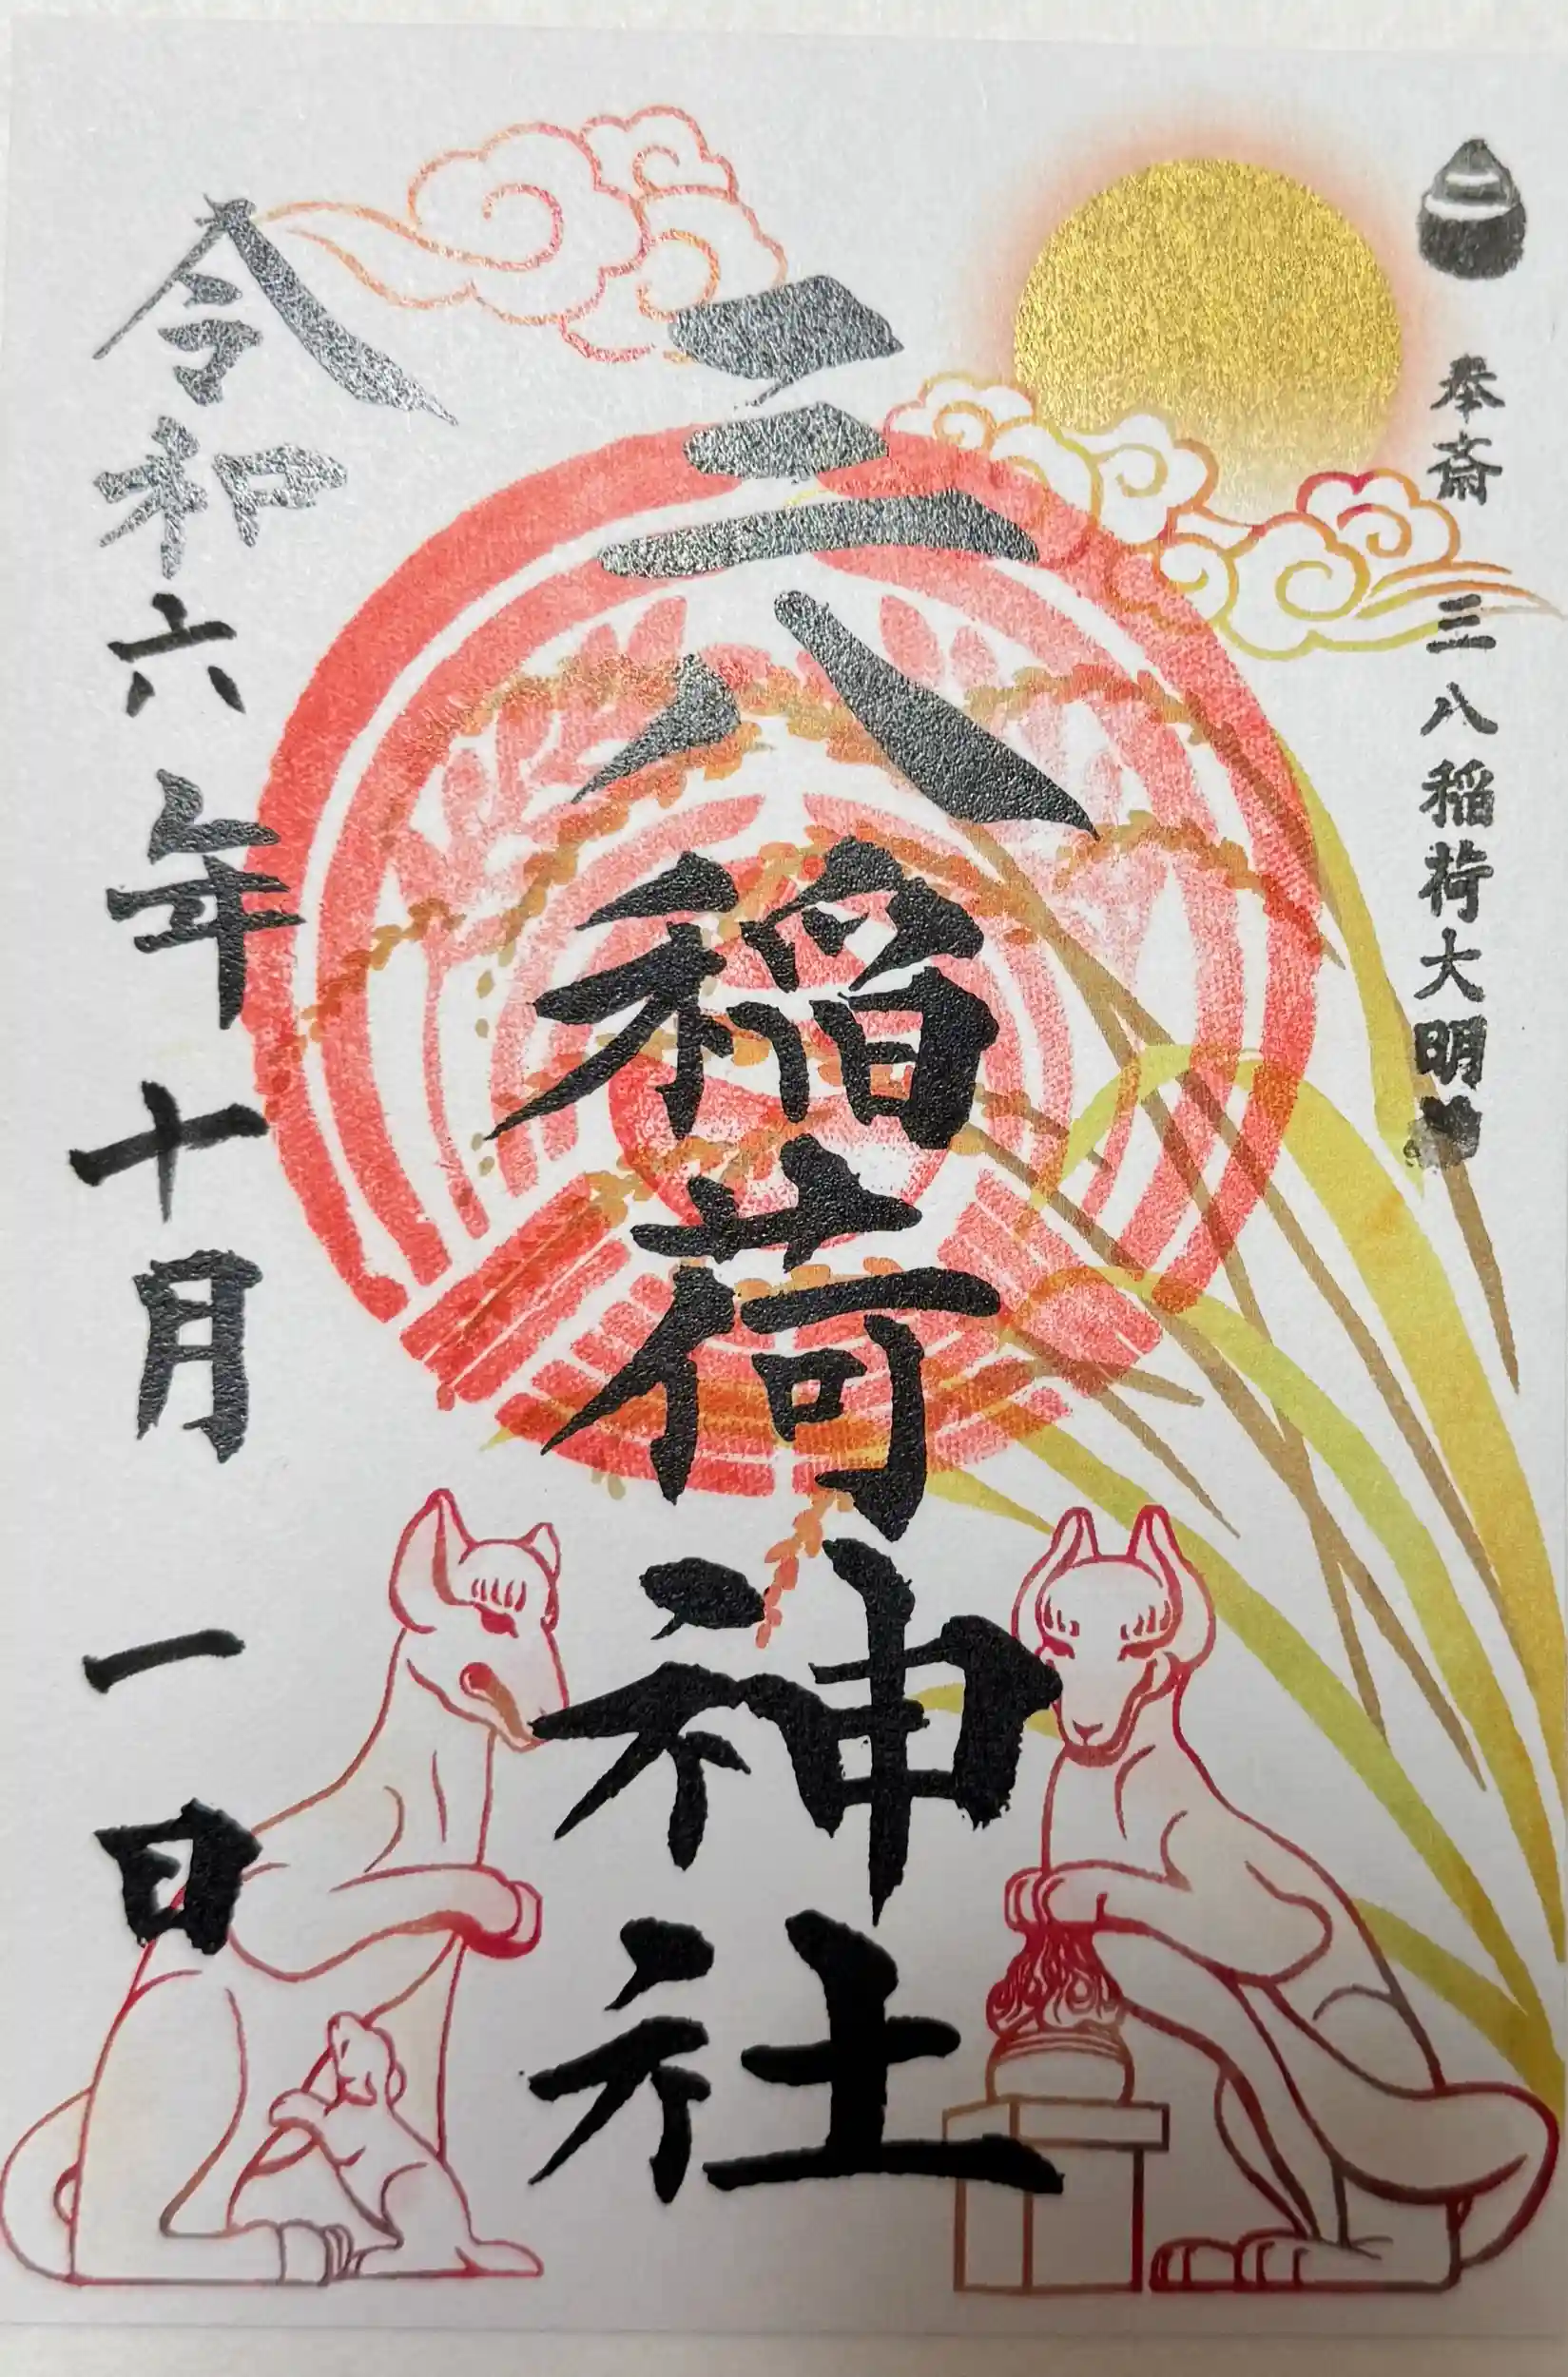 奉斎 三八稲荷大明神
三八稲荷神社
令和六年十月一日